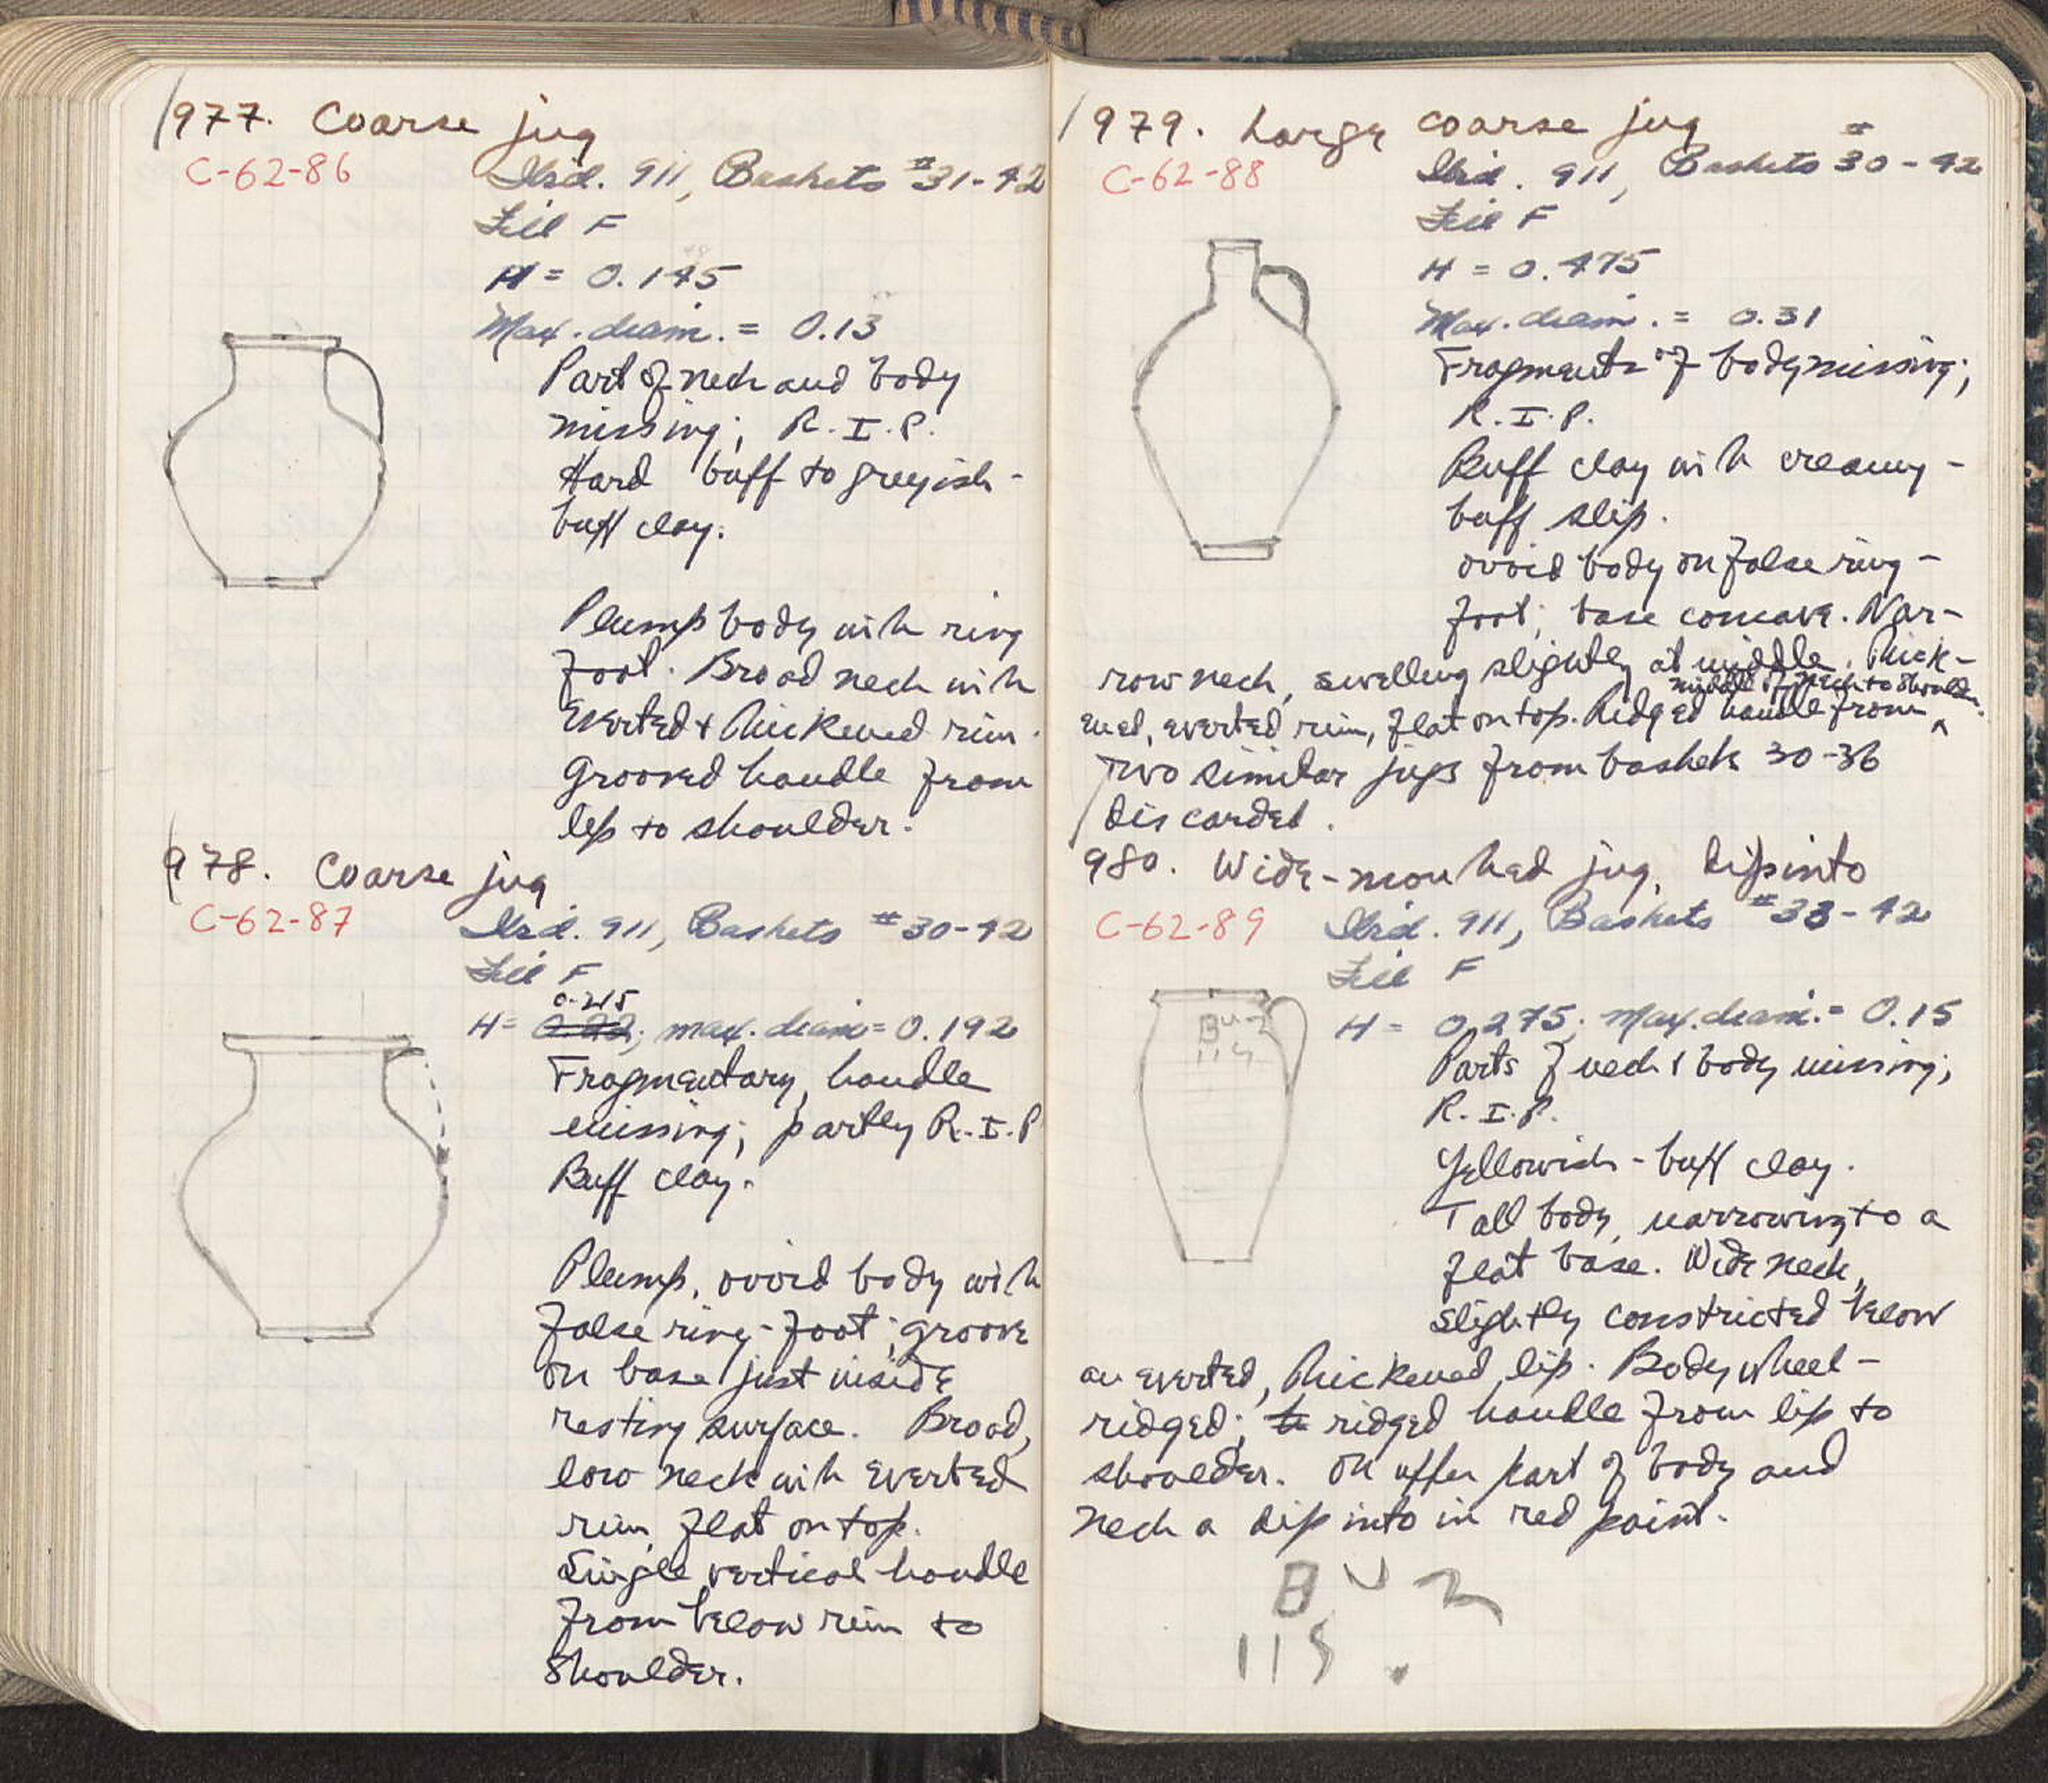 977. Coarse jug
C-62-86
Ibid. 911, Baskets #31-42
Fill F
H = 0.145
Max. diam. = 0.13
Part of neck and body
missing; R.I.P.
Hard buff to greyish-
buff clay.
Plump body with ring
foot. Broad neck with
everted & thickened rim.
Grooved handle from
lip to shoulder.
978. Coarse jug
C-62-87
Ibid. 911, Baskets #30-42
Fill F
0.215
H = 0.22; max. diam = 0.192
Fragmentary, handle
missing; partly R.I.P
Buff clay.
Plump, ovoid body with
false ring-foot; groove
on base just inside
resting surface. Broad,
low neck with everted
rim, flat on top.
Single vertical handle
from below rim to
shoulder.
979. Large coarse jug
C-62-88
Ibid. 911, Baskets #30-42
Fill F
H = 0.475
Max. diam. = 0.31
Fragments of body missing;
R.I.P.
Buff clay with creamy-
buff slip.
Ovoid body on false ring-
foot; base concave. Nar-
row neck, swelling slightly at middle. Thick-
middle of neck to shoulder.
ened, everted rim, flat on top. Ridged handle from ^
Two similar jugs from baskets 30-36
discarded.
980. Wide-mouthed jug, dipinto
C-62-89
Ibid. 911, Baskets #33-42
Fill F
H = 0.275; Max. diam. = 0.15
Parts of neck & body missing;
R.I.P.
Yellowish-buff clay.
Tall body, narrowing to a
flat base. Wide neck,
slightly constricted below
an everted, thickened lip. Body wheel-
ridged; h ridged handle from lip to
shoulder. On upper part of body and
neck a dipinto in red paint.